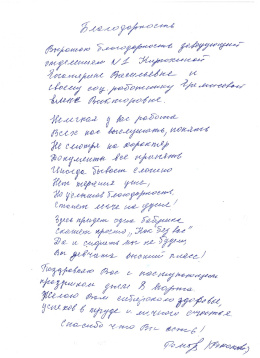 Благодарность
Выражаю благодарность заведующей
отделением №1
Екатерине Васильевне и
своему соц. работнику
Викторовне.
Нелегкая у вас работа
Всех нас выслушать, понять
Не смотря на характер
Документы все принять
Иногда бывает сложно
Нет терения уже,
Но услышав благодарность,
Станет легче на душе!
Здесь придет одна бабушка
Скажет просто "Как без вас"
Да и сидать мы не будем
Вы девчата высший класс!
Поздравляю Вас с наступающим
праздником днём 8 марта
Желаю Вам сибирского здоровья,
успехов в труде и личного счастья
Спасибо что Вы есть!